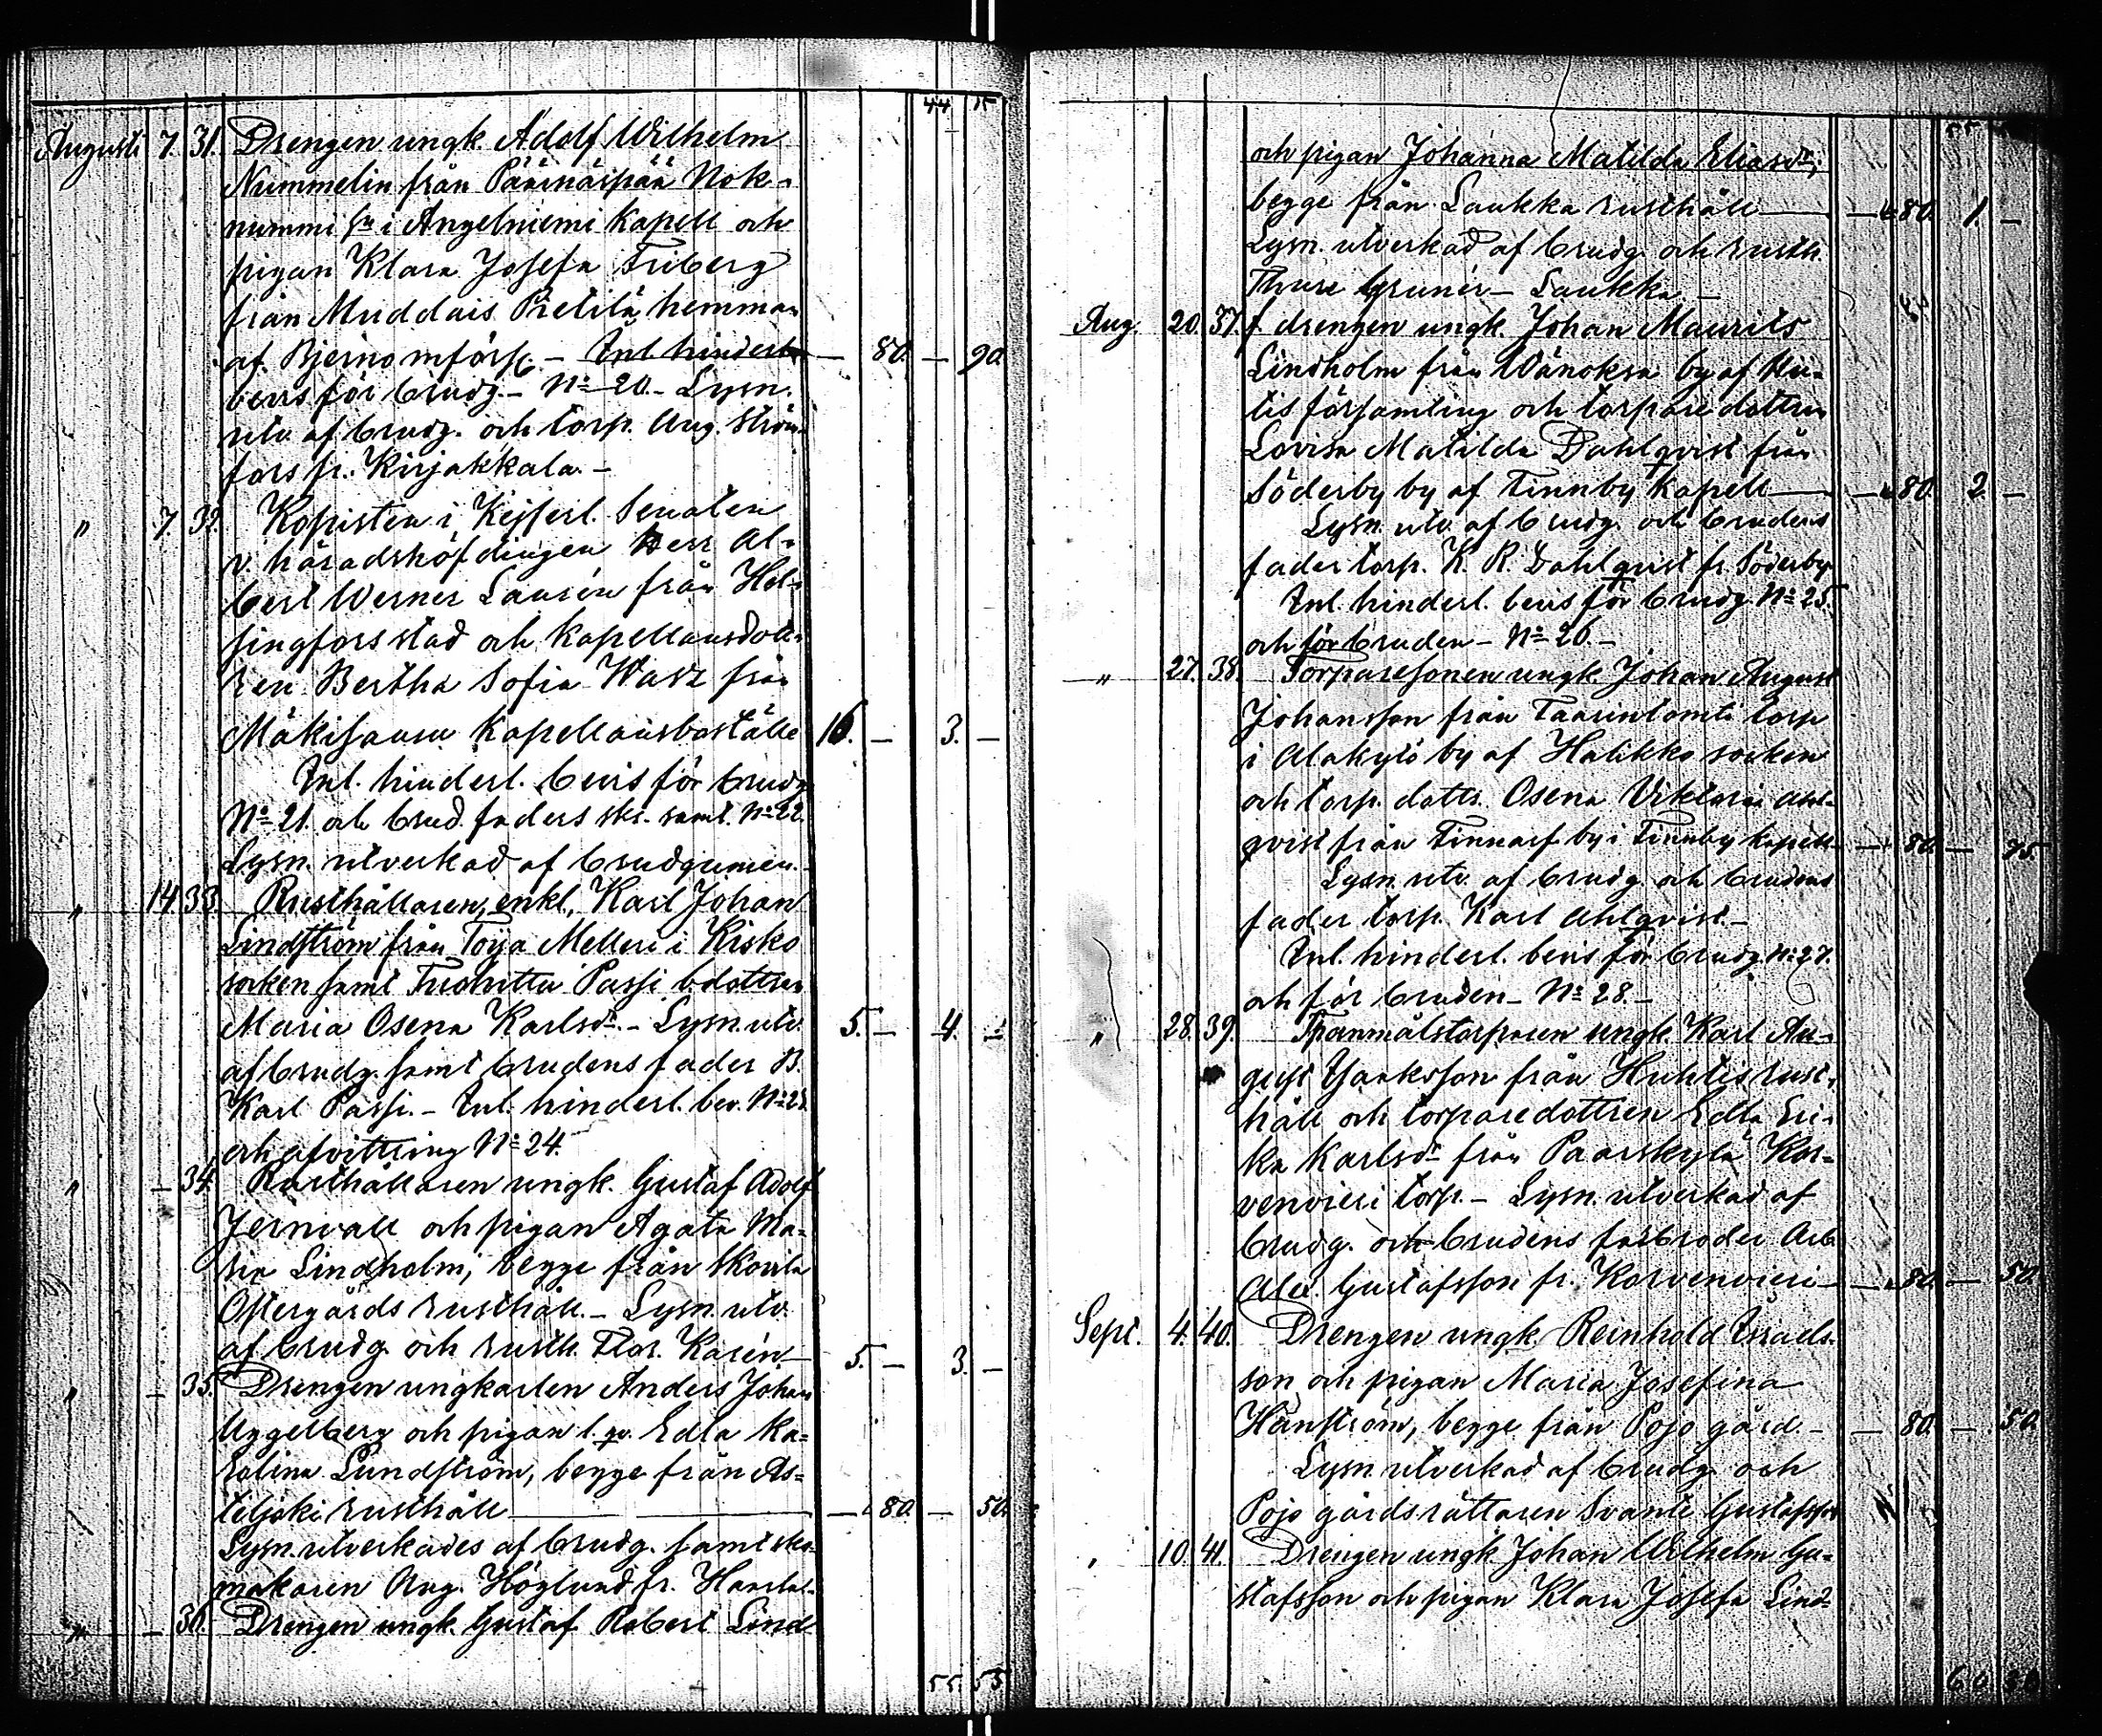 44 15
Augusti 7. 31. Drengen ungk. Adolf Wilhelm
Nummelin från Päärnäspää Nok-
nummi by i Angelniemi Kapell och
pigan Klara Josefa Friberg
från Muddais Pietilä hemman
af Bjerno mförs. – Inl. hinderl. — 80. — 90.
bevis för brudg. – No 20. – Lysn.
utv. af brudg. och torp. Aug. Ström-
fors fr. Kirjakkala. –
" 7. 32. Kopisten i Kejserl. Senaten
v. häradshöfdingen Herr Al-
bert Werner Laurén från Hel-
singfors stad och Kapellansdott-
ren Bertha Sofia Wasz från
Mäkisauru Kapellansboställe 16. — 3. —
Inl. hinderl. bevis för brudg.
No 21. och brud. faders skr. samt. No 22.
Lysn. utverkad af brudgumen. –
" 14. 33. Rusthållaren, enkl. Karl Johan
Lindström från Toija Melleri i Kisko
socken samt Passi bdottren
Maria Osena Karlsdr. – Lysn. utv. 5. — 4. —
af brudg. samt brudens fader B.
Karl Passi. – Inl. hinderl. bev. No 23
och afvittring No 24.
" — 34. Rusthållaren ungk. Gustaf Adolf
Jernvall och pigan Agata Ma-
ria Lindholm, begge från Skoila
Östergårds rusthåll. – Lysn. utv.
af brudg. och rusth. Flor. Karén. — 5. — 3. —
" — 35. Drengen ungkarlen Anders Johan
Uggelberg och pigan l. qv. Edla Ka-
rolina Lundström, begge från As-
teljoki rusthåll — — 80. — 50.
Lysn. utverkades af brudg. samt sko-
makaren Aug. Höglund fr.
" — 36. Drengen ungk. Gustaf Robert Lind-
55. 55
55
och pigan Johanna Matilda Eliasdr.,
begge från Laukka rusthåll — — 80. 1. —
Lysn. utverkad af brudg. och rusth.
Thure Grunér – Laukka –
Aug. 20. 37. f. drengen ungk. Johan Maurits
Lindholm från Wänoksa by af Hii-
tis församling och torparedottren
Lovisa Matilda Dahlqvist från
Söderby by af Finnby Kapell — — 80. 2. —
Lysn. utv. af brudg. och brudens
fader torp. K. R. Dahlqvist fr. Söderby
Inl. hinderl. bevis för brudg. No 25.
och för bruden – No 26. –
" 27. 38. Torparesonen ungk. Johan August
Johansson från torp
i Alakylö by af Halikko socken
och torp. dottr. Osena Viktoria Ahl-
qvist från by i Finnby kapell — — 80. — 75
Lysn. utv. af brudg. och brudens
fader torp. Karl Ahlqvist. –
Inl. hinderl. bevis för brudg. No 27.
och för bruden – No 28. –
" 28. 39. Spanmålstorparen ungk. Karl Au-
gust Jaaksson från Huhtis rust-
håll och torparedottren Edla Eri-
ka Karlsdr från Paarskylä Kor-
venvieri torp. – Lysn. utverkad af
brudg. och brudens farbroder Arb.
Alex. Gustafsson fr. Korvenvieri — — 80. — 50.
Sept. 4. 40. Drengen ungk. Reinhold Isaks-
son och pigan Maria Josefina
Hanström, begge från Pojo gård. – — 80. — 50.
Lysn. utverkad af brudg. och
Pojo gårds rättaren Svante Gustafsson
" 10. 41. Drengen ungk. Johan Wilhelm Gu-
stafsson och pigan Klara Josefa Lind-
60 50